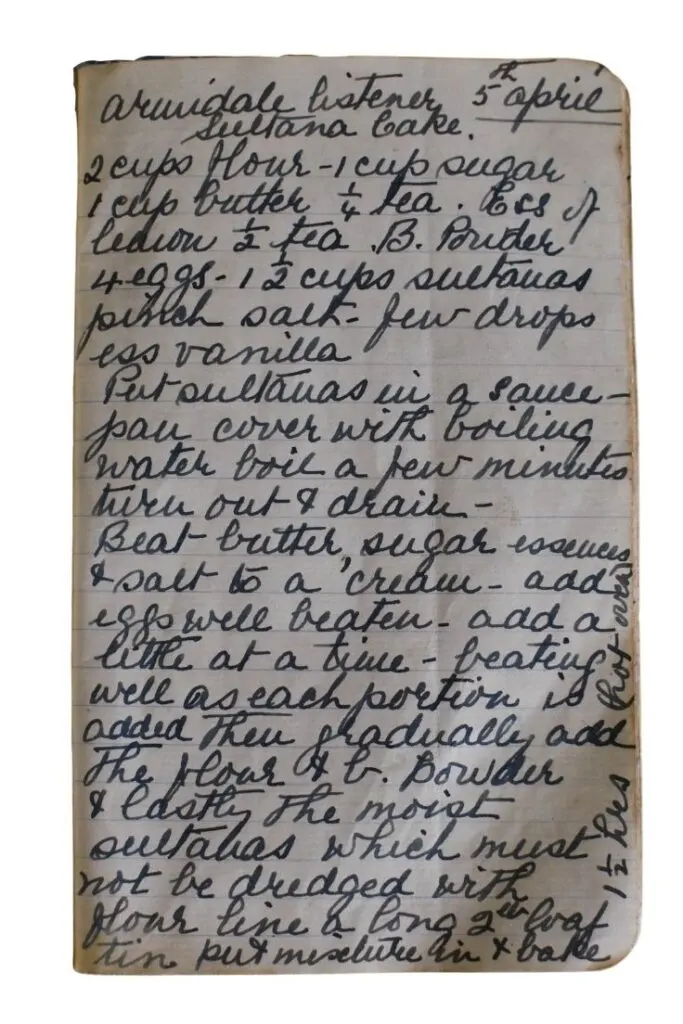 armidale listener 5th april
Sultana Cake.
2 cups flour - 1 cup sugar
1 cup butter ¼ tea. Ess of
lemon ½ tea. B. Powder
4 eggs - 1½ cups sultanas
pinch salt - few drops
ess vanilla
Put sultanas in a sauce-
pan cover with boiling
water boil a few minutes
turn out & drain -
Beat butter, sugar essences
& salt to a cream - add
eggs well beaten - add a
little at a time - beating
well as each portion is
added then gradually add
the flour & b. Powder
& lastly the moist
sultanas which must
not be dredged with
flour line a long 2lb loaf
tin put mixture in & bake
1½ hrs hot oven